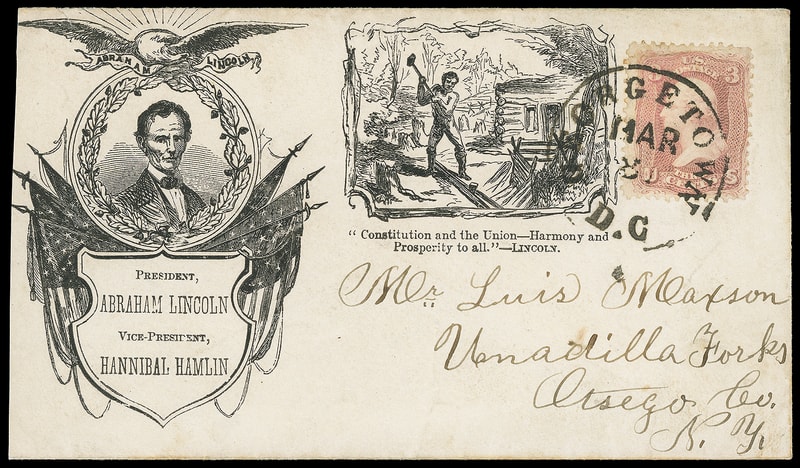 ABRAHAM LINCOLN
PRESIDENT,
ABRAHAM LINCOLN
VICE-PRESIDENT,
HANNIBAL HAMLIN
“ Constitution and the Union—Harmony and
Prosperity to all.”—LINCOLN.
U.S. POSTAGE
3
GEORGETOWN
MAR
D.C
U
S
Mr Luis Maxson
Unadilla Forks
Otsego Co.
N. Y.